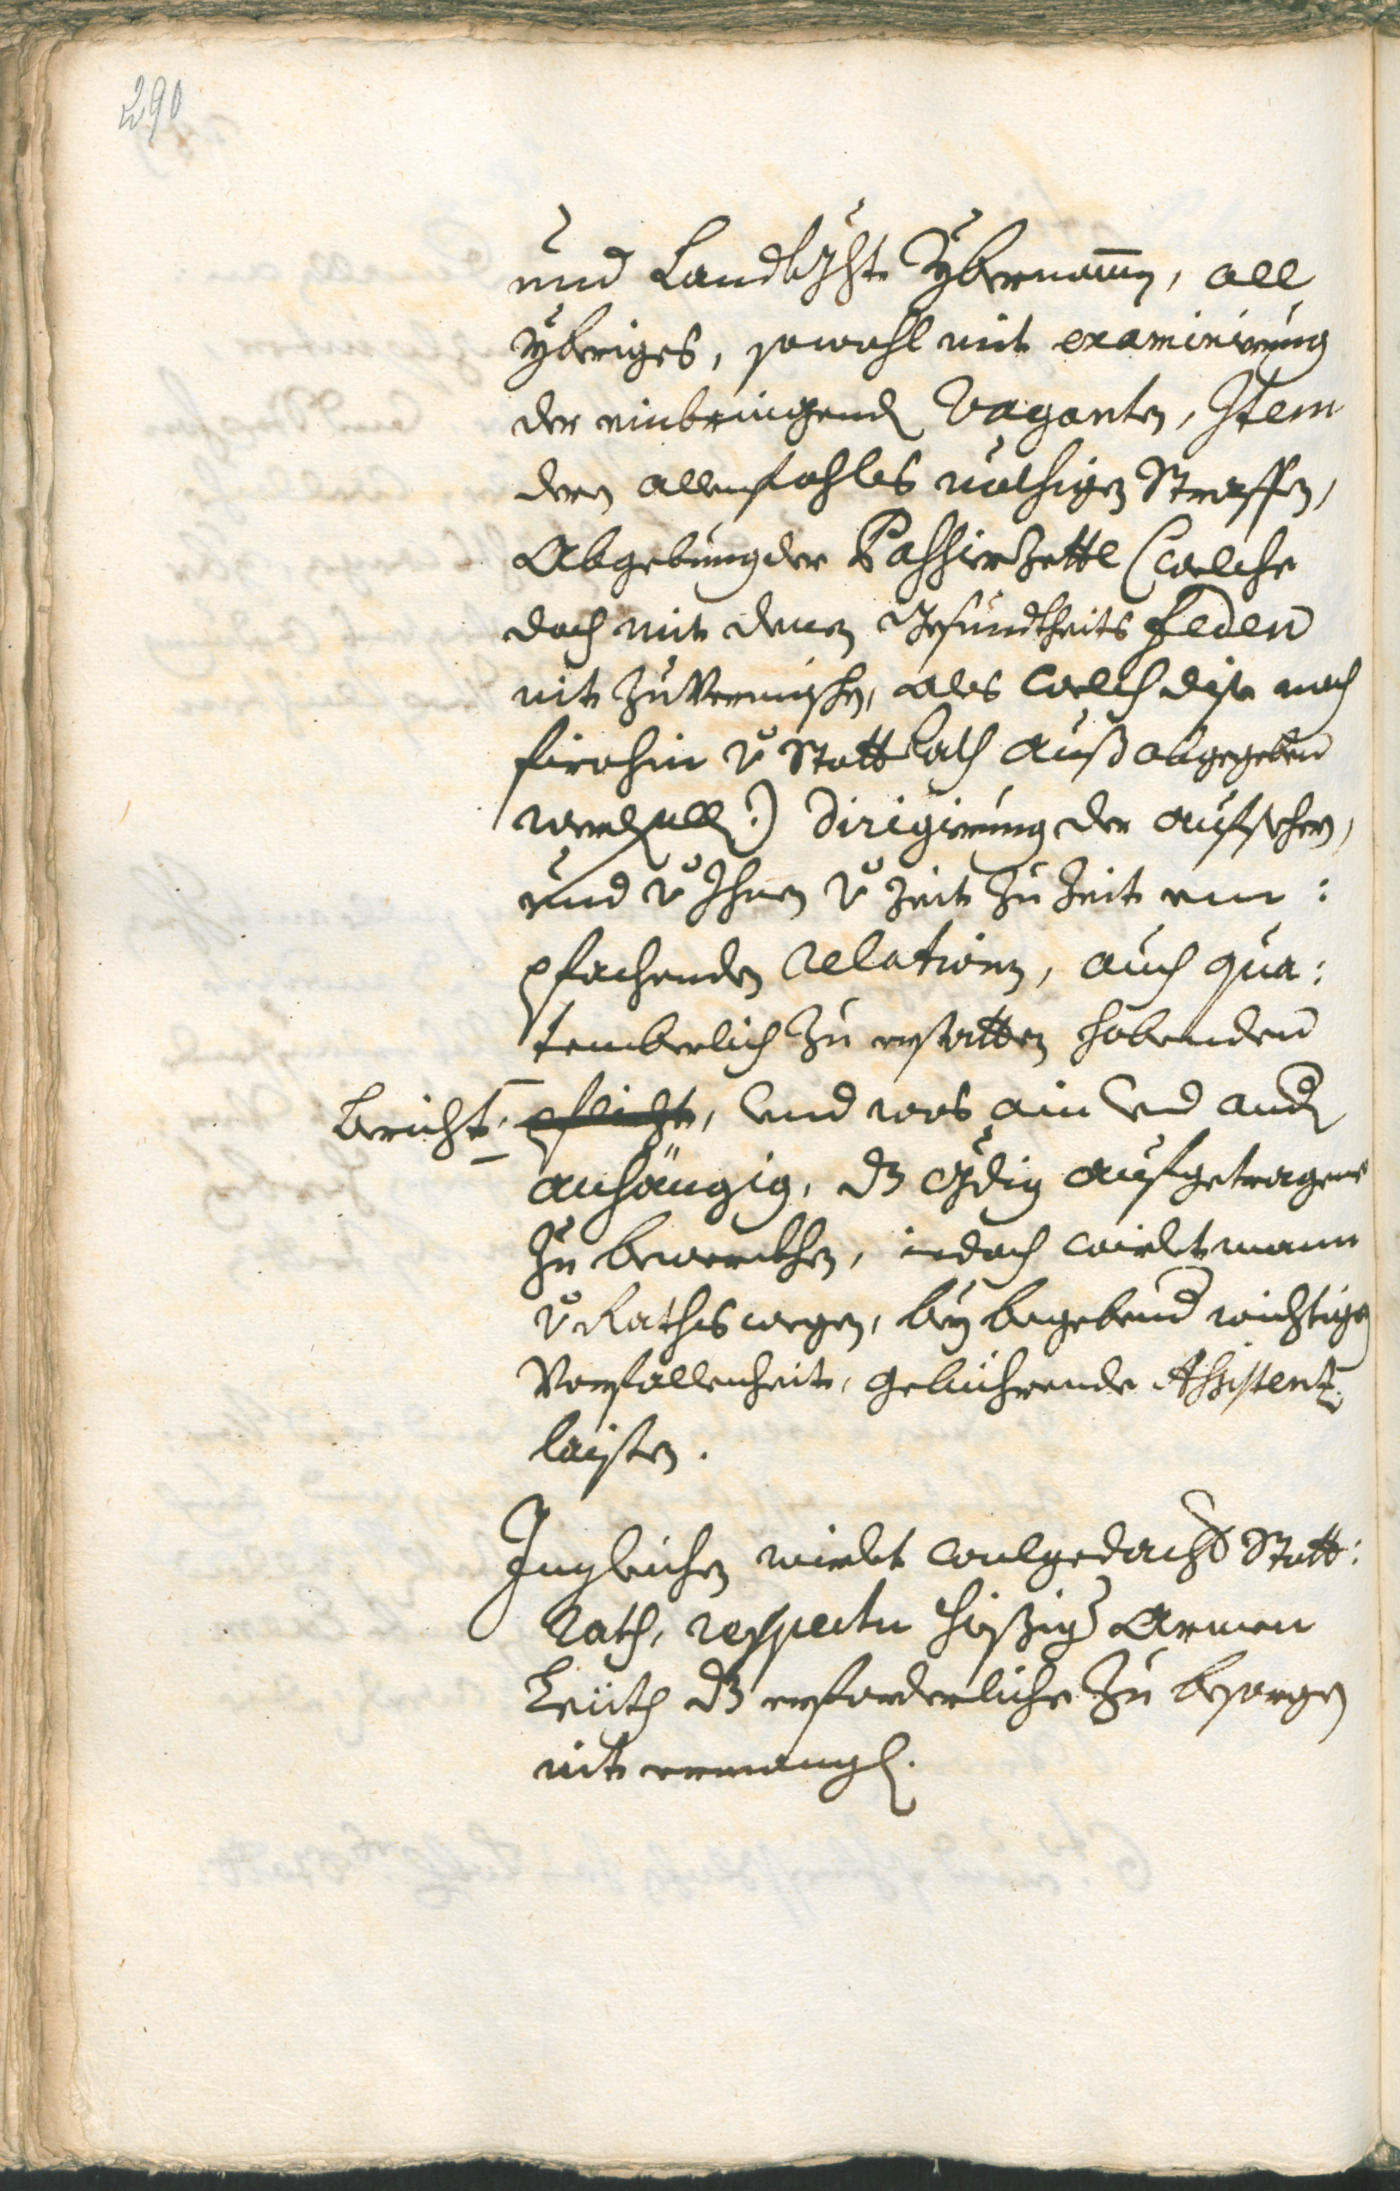 290
und Landtghts Ybernamm, all
Ybriges, sowohl mit examinierung
der einbringendn Vaganten, Item
deren allenfahls nöthigen Straffen,
Abgebung der Passierzettl (: welche
doch mit denen Gesundtheits feden
nit zu vermischen, als welch dise noch
firohin v Statt Rath auß abgegeben
werdn solln :) Dirigierung der aufseher,
und v Ihnen v Zeit zu Zeit em:
pfachenden relationen, auch qua:
temberlich zu erstatten habenden
Bericht pflicht, und was ain und andn
anhängig, dz gdig aufgetragene
zu bewerckhen, iedoch wirdet mann
v Raths wegen, bey begebend wichtigen
Vorfallenheit, gebührende Assistenz
laisten.
Ingleichen wirdet wolgedacht Statt:
Rath, respectu hießiger Armen
Leüth dz erforderliche zu besorgen
nit ermangln.